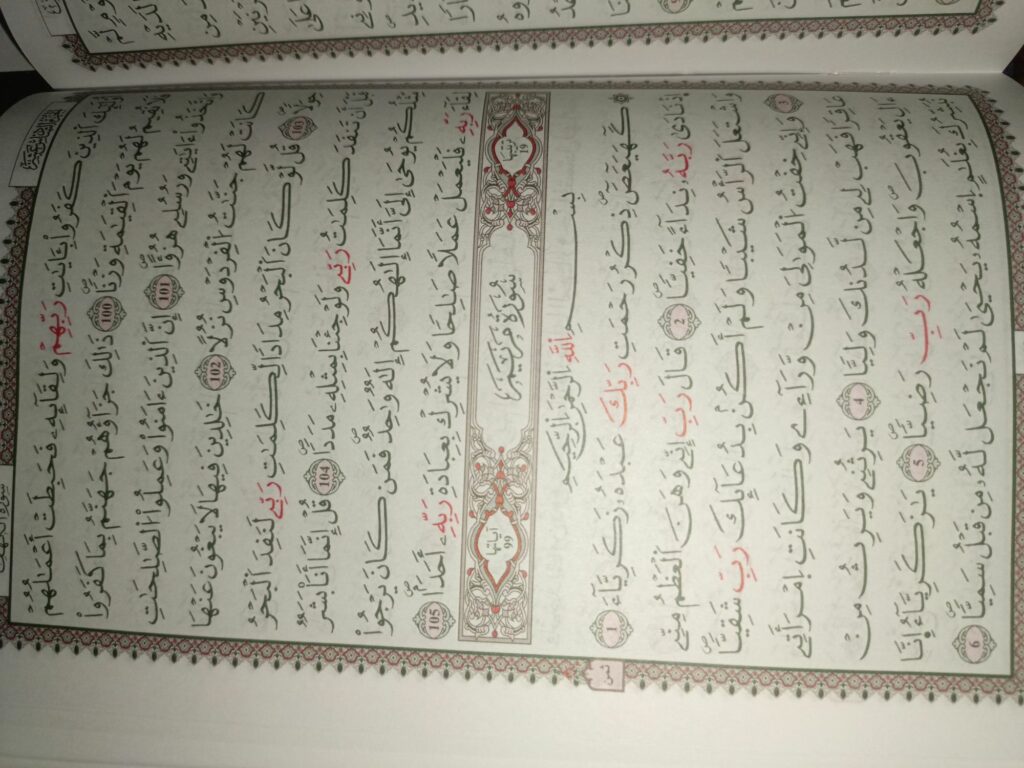 سورة الكهف
أُوْلَٰٓئِكَ اَ۬لذِينَ كَفَرُواْ بِـَٔايَٰتِ رَبِّهِمْ وَلِقَآئِهِۦ فَحَبِطَتَ اَعْمَٰلُهُمْ
فَلَا نُقِيمُ لَهُمْ يَوْمَ اَ۬لْقِيَٰمَةِ وَزْناٗ 100 ذَٰلِكَ جَزَآؤُهُمْ جَهَنَّمُ بِمَا كَفَرُواْ
وَاتَّخَذُوٓاْ ءَايَٰتِے وَرُسُلِے هُزُؤاً 101 اِنَّ اَ۬لذِينَ ءَامَنُواْ وَعَمِلُواْ اُ۬لصَّٰلِحَٰتِ
كَانَتْ لَهُمْ جَنَّٰتُ اُ۬لْفِرْدَوْسِ نُزُلاً 102 خَٰلِدِينَ فِيهَا لَا يَبْغُونَ عَنْهَا
حِوَلاٗ 103 قُل لَّوْ كَانَ اَ۬لْبَحْرُ مِدَاداٗ لِّكَلِمَٰتِ رَبِّے لَنَفِدَ اَ۬لْبَحْرُ
قَبْلَ أَن تَنفَدَ كَلِمَٰتُ رَبِّے وَلَوْ جِئْنَا بِمِثْلِهِۦ مَدَداٗ 104 قُلِ اِنَّمَآ أَنَا بَشَرٞ
مِّثْلُكُمْ يُوح۪يٰٓ إِلَيَّ أَنَّمَآ إِلَٰهُكُمُۥٓ إِلَٰهٞ وَٰحِدٞ فَمَن كَانَ يَرْجُواْ
لِقَآءَ رَبِّهِۦ فَلْيَعْمَلْ عَمَلاٗ صَٰلِحاٗ وَلَا يُشْرِكْ بِعِبَادَةِ رَبِّهِۦٓ أَحَداٗ 105
ترتيبها 19 سُورَةُ مَرْيَمَ آياتها 99
بِسْمِ اِ۬للَّهِ اِ۬لرَّحْمَٰنِ اِ۬لرَّحِيمِ
كَٓهَيَعَٓصَٓ ذِكْرُ رَحْمَتِ رَبِّكَ عَبْدَهُۥ زَكَرِيَّآءَ 1
اِذْ نَاد۪يٰ رَبَّهُۥ نِدَآءً خَفِيّاٗ 2 قَالَ رَبِّ إِنِّے وَهَنَ اَ۬لْعَظْمُ مِنِّے
وَاشْتَعَلَ اَ۬لرَّأْسُ شَيْباٗ وَلَمَ اَكُنۢ بِدُعَآئِكَ رَبِّ شَقِيّاٗ
3 وَإِنِّے خِفْتُ اُ۬لْمَوَٰلِيَ مِنْ وَّرَآءِے وَكَانَتِ اِ۪مْرَأَتِے
عَاقِراٗ فَهَبْ لِے مِن لَّدُنكَ وَلِيّاٗ 4 يَرِثُنِے وَيَرِثُ مِنَ
اٰلِ يَعْقُوبَ وَاجْعَلْهُ رَبِّ رَضِيّاٗ 5 يَٰزَكَرِيَّآءُ اِ۪نَّا
نُبَشِّرُكَ بِغُلَٰمٍ اِ۪سْمُهُۥ يَحْي۪يٰ لَمْ نَجْعَل لَّهُۥ مِن قَبْلُ سَمِيّاٗ 6
ثمن